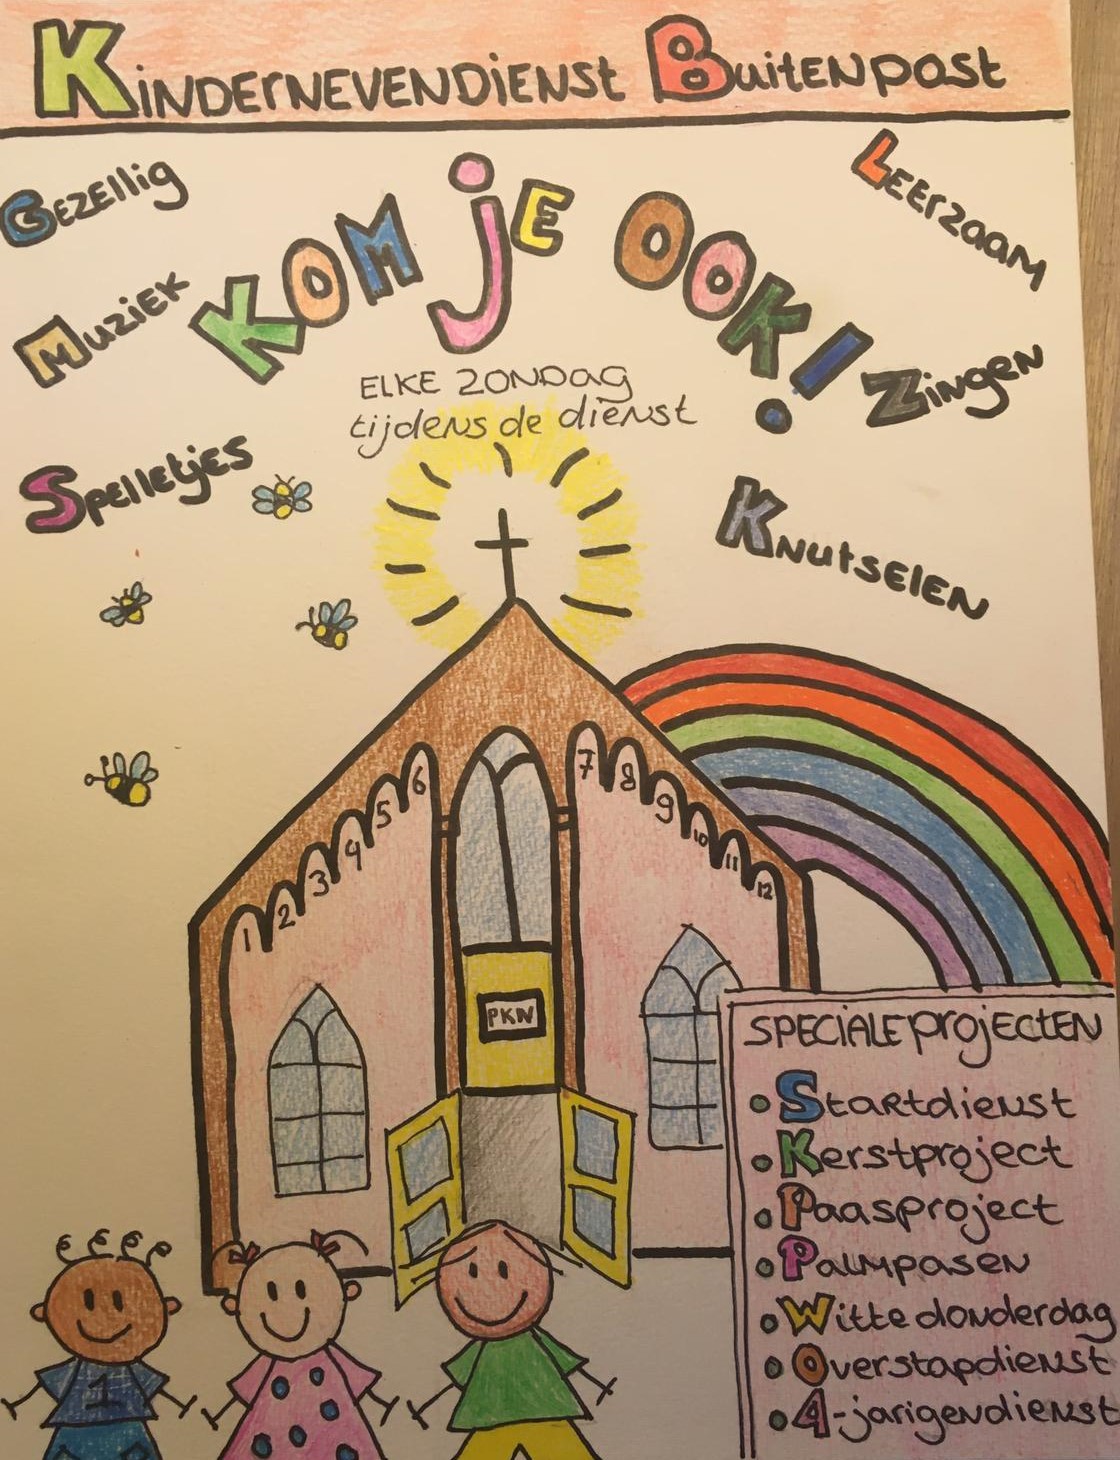 KINDERNEVENDIENST BuitENpost
GEZEllig
LEErzaam
KOM jE OOK!
Muziek
ELKE ZONDAg
tijdens de dienst
Zingen
Spelletjes
Knutselen
1 2 3 4 5 6 7 8 9 10 11 12
PKN
SPECiALE projecten
• Startdienst
• Kerstproject
• Paasproject
• Palmpasen
• Witte donderdag
• Overstapdienst
• 4-jarigendienst
1